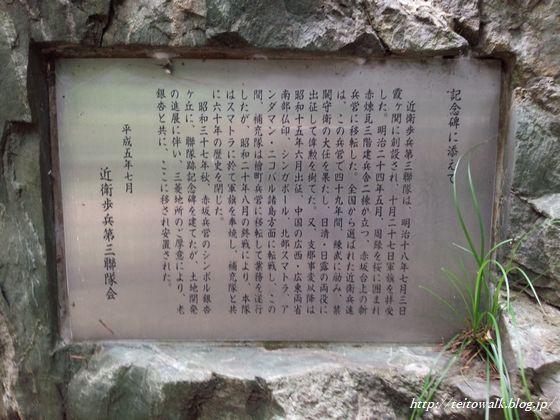 記念碑に添えて
近衛歩兵第三聯隊は、明治十八年七月三日
霞ヶ関に創設され、十月二十七日軍旗を拝受
した。明治二十四年五月、周縁を桜に囲まれ
赤煉瓦三階建兵舎二棟が立つ、赤坂台上の新
兵営に移転した。全国から選ばれた近衛兵達
は、この兵営で四十九年間、練武に励み、禁
闕守衛の大任を果たし、日清・日露の両役に
出征して偉勲を樹てた。又、支那事変以降は
昭和十五年六月出征、中国の広西・広東両省
南部仏印、シンガポール、北部スマトラ、ア
ンダマン・ニコバル諸島方面に転戦し、この
間、補充隊は檜町兵営に移転して業務を遂行
したが、昭和二十年八月の終戦により、本隊
はスマトラに於て軍旗を奉焼し、補充隊と共
に六十年の歴史を閉じた。
昭和三十七年秋、赤坂兵営のシンボル銀杏
ヶ丘に、聯隊跡記念碑を建てたが、土地開発
の進展に伴い、三菱地所のご厚意により、老
銀杏と共に、ここに移され安置された。
平成五年七月
近衛歩兵第三聯隊会
http://teitowalk.blog.jp/